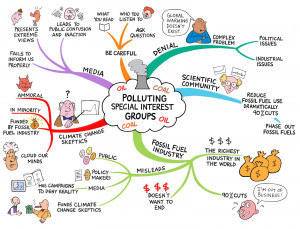 WHAT YOU
READ
WHO YOU
LISTEN TO
ASK
QUESTIONS
BE CAREFUL
LEADS TO
PUBLIC CONFUSION
AND INACTION
PRESENTS
EXTREME
VIEWS
FAILS TO
INFORM US
PROPERLY
MEDIA
GLOBAL
WARMING
DOESN'T
EXIST.
DENIAL
COMPLEX
PROBLEM
POLITICAL
ISSUES
INDUSTRIAL
ISSUES
SCIENTIFIC
COMMUNITY
REDUCE
FOSSIL FUEL USE
DRAMATICALLY
90% CUTS
PHASE OUT
FOSSIL FUELS
OIL
COAL
POLLUTING
SPECIAL INTEREST
GROUPS
OIL
COAL
?
AMMORAL
IN MINORITY
FUNDED BY
FOSSIL FUEL
INDUSTRY
CLOUD OUR
MINDS
CLIMATE CHANGE
SKEPTICS
FOSSIL FUEL
INDUSTRY
$ $ $
THE RICHEST
INDUSTRY IN THE
WORLD
90% CUTS
I'M OUT OF
BUSINESS!
$ $ $
DOESN'T
WANT TO
END
MISLEADS
PUBLIC
POLICY
MAKERS
MEDIA
HAS CAMPAIGNS
TO DENY REALITY
FUNDS CLIMATE
CHANGE SKEPTICS